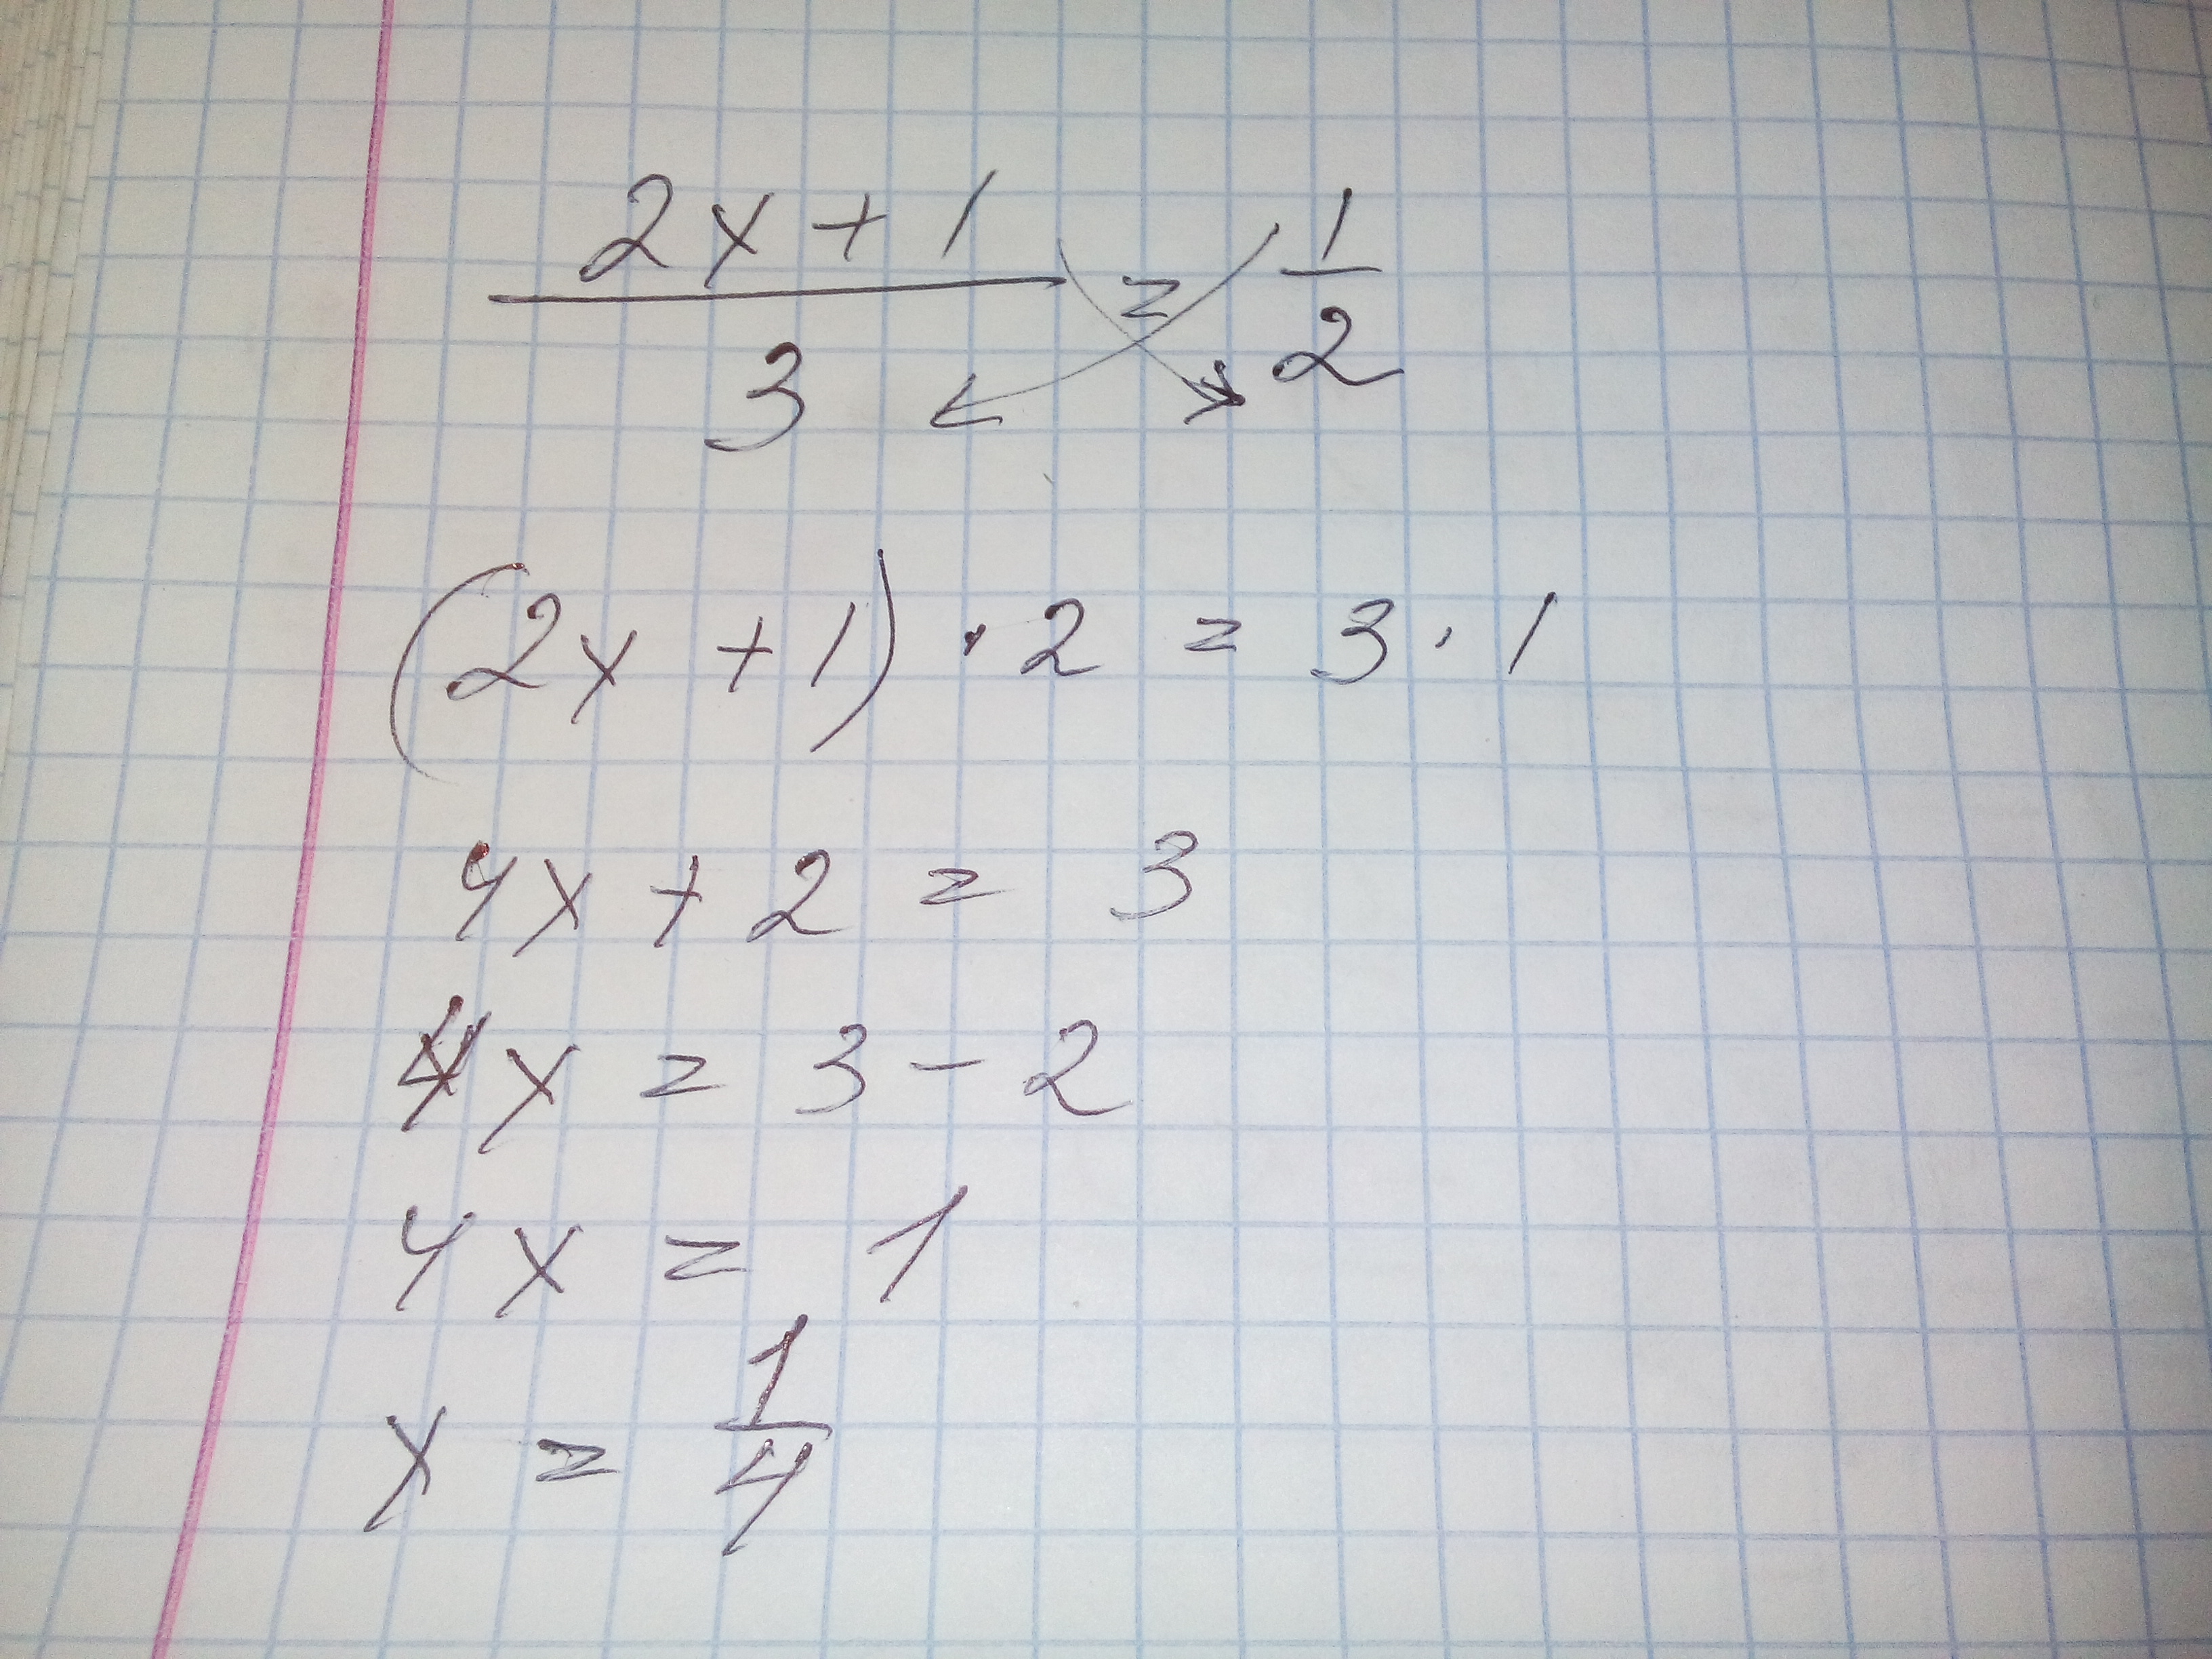 (2x + 1)/3 = 1/2
(2x + 1) · 2 = 3 · 1
4x + 2 = 3
4x = 3 - 2
4x = 1
x = 1/4